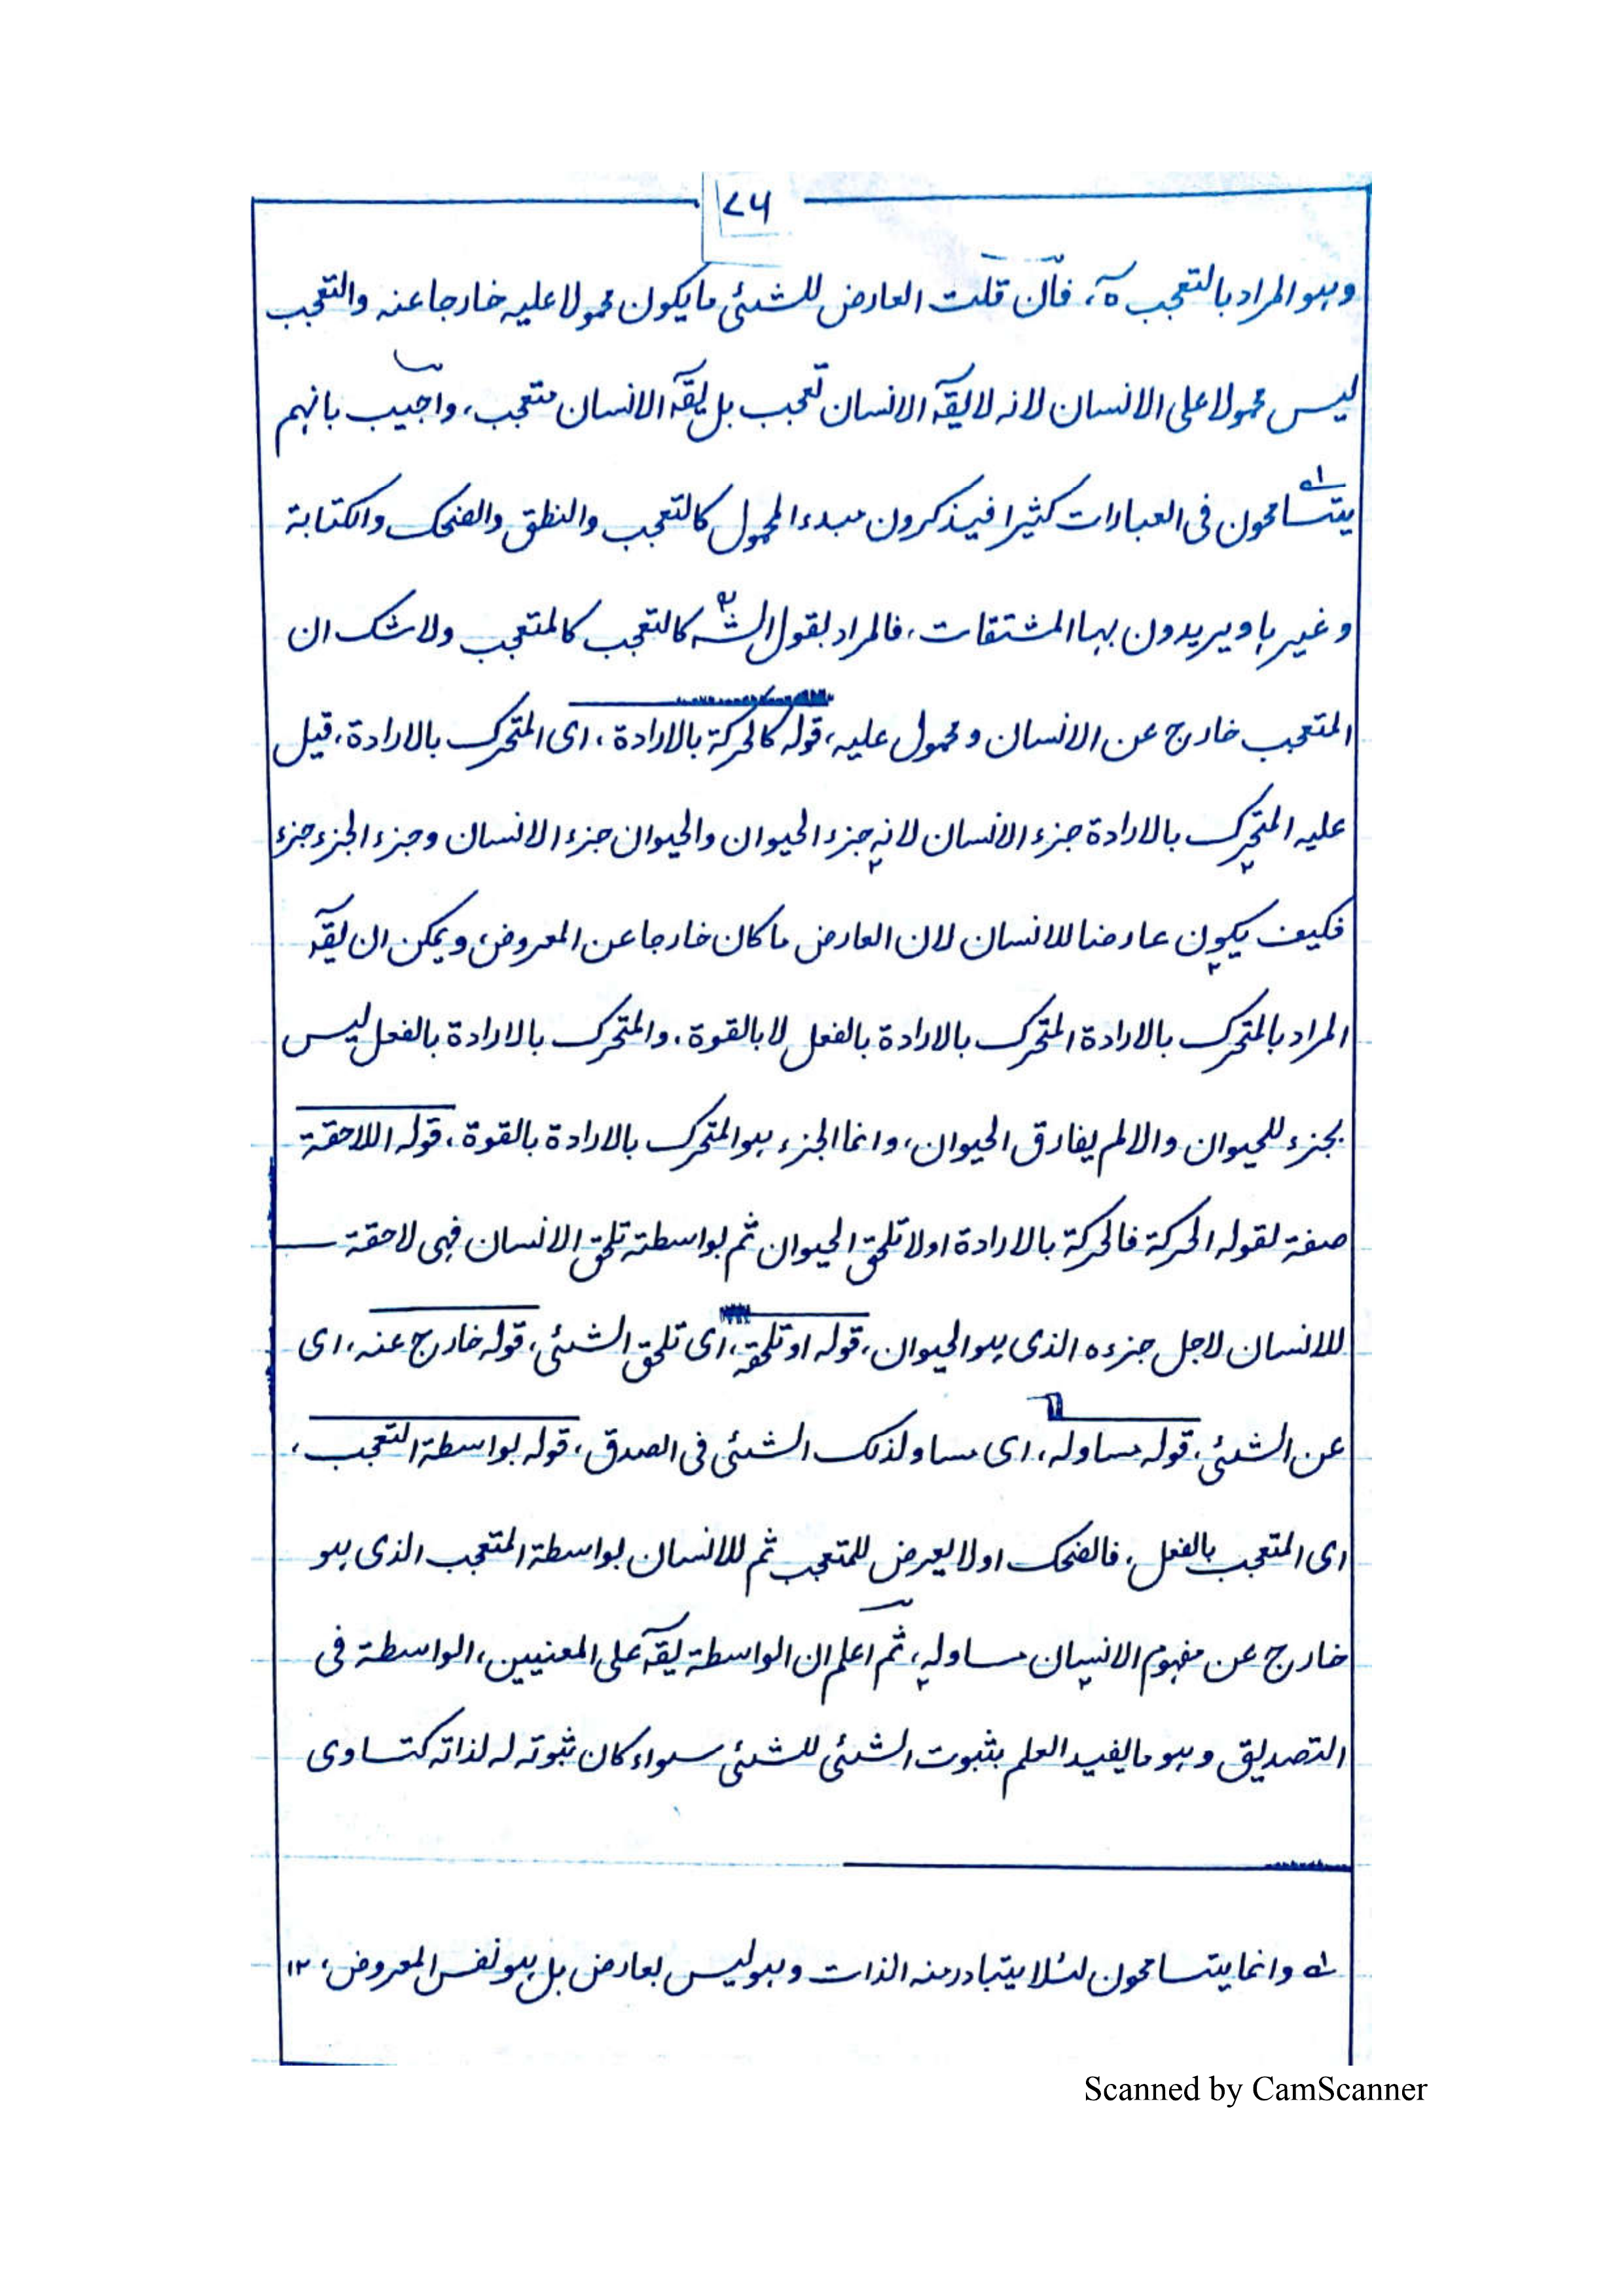 ۷۵
وہو المراد بالتعجب ہ، فان قلت العارض للشئی ما یکون محمولا علیہ خارجا عنہ والتعجب
لیس محمولا علی الانسان لانہ لا یقآ الانسان تعجب بل یقآ الانسان متعجب، واجیب بانہم
یتسامحون فی العبارات کثیرا فیذکرون مبدء المحمول کالتعجب والنطق والضحک والکتابۃ
وغیرہا ویریدون بہا المشتقات، فالمراد بقول الشہ کالتعجب کالمتعجب ولا شک ان
المتعجب خارج عن الانسان ومحمول علیہ، قولہ کالحرکۃ بالارادۃ، ای المتحرک بالارادۃ، قیل
علیہ المتحرک بالارادۃ جزء الانسان لانہ جزء الحیوان والحیوان جزء الانسان وجزء الجزء جزء
فکیف یکون عارضا للانسان لان العارض ما کان خارجا عن المعروض، ویمکن ان یقآ
المراد بالمتحرک بالارادۃ المتحرک بالارادۃ بالفعل لا بالقوۃ، والمتحرک بالارادۃ بالفعل لیس
بجزء للحیوان والا لم یفارق الحیوان، وانما الجزء ہو المتحرک بالارادۃ بالقوۃ، قولہ اللاحقۃ
صفۃ لقولہ الحرکۃ فالحرکۃ بالارادۃ اولا تلحق الحیوان ثم بواسطتہ تلحق الانسان فہی لاحقۃ
للانسان لاجل جزءہ الذی ہو الحیوان، قولہ او تلحقہ، ای تلحق الشئی، قولہ خارج عنہ، ای
عن الشئی، قولہ مساو لہ، ای مساو لذلک الشئی فی الصدق، قولہ بواسطۃ التعجب،
ای المتعجب بالفعل، فالضحک اولا یعرض للمتعجب ثم للانسان بواسطۃ المتعجب الذی ہو
خارج عن مفہوم الانسان مساو لہ، ثم اعلم ان الواسطۃ یقآ علی المعنیین، الواسطۃ فی
التصدیق وہو ما یفید العلم بثبوت الشئی للشئی سواء کان ثبوتہ لہ لذاتہ کتساوی
لہ وانما یتسامحون لئلا یتبادر منہ الذات وہو لیس بعارض بل ہو نفس المعروض، ۱۲
Scanned by CamScanner